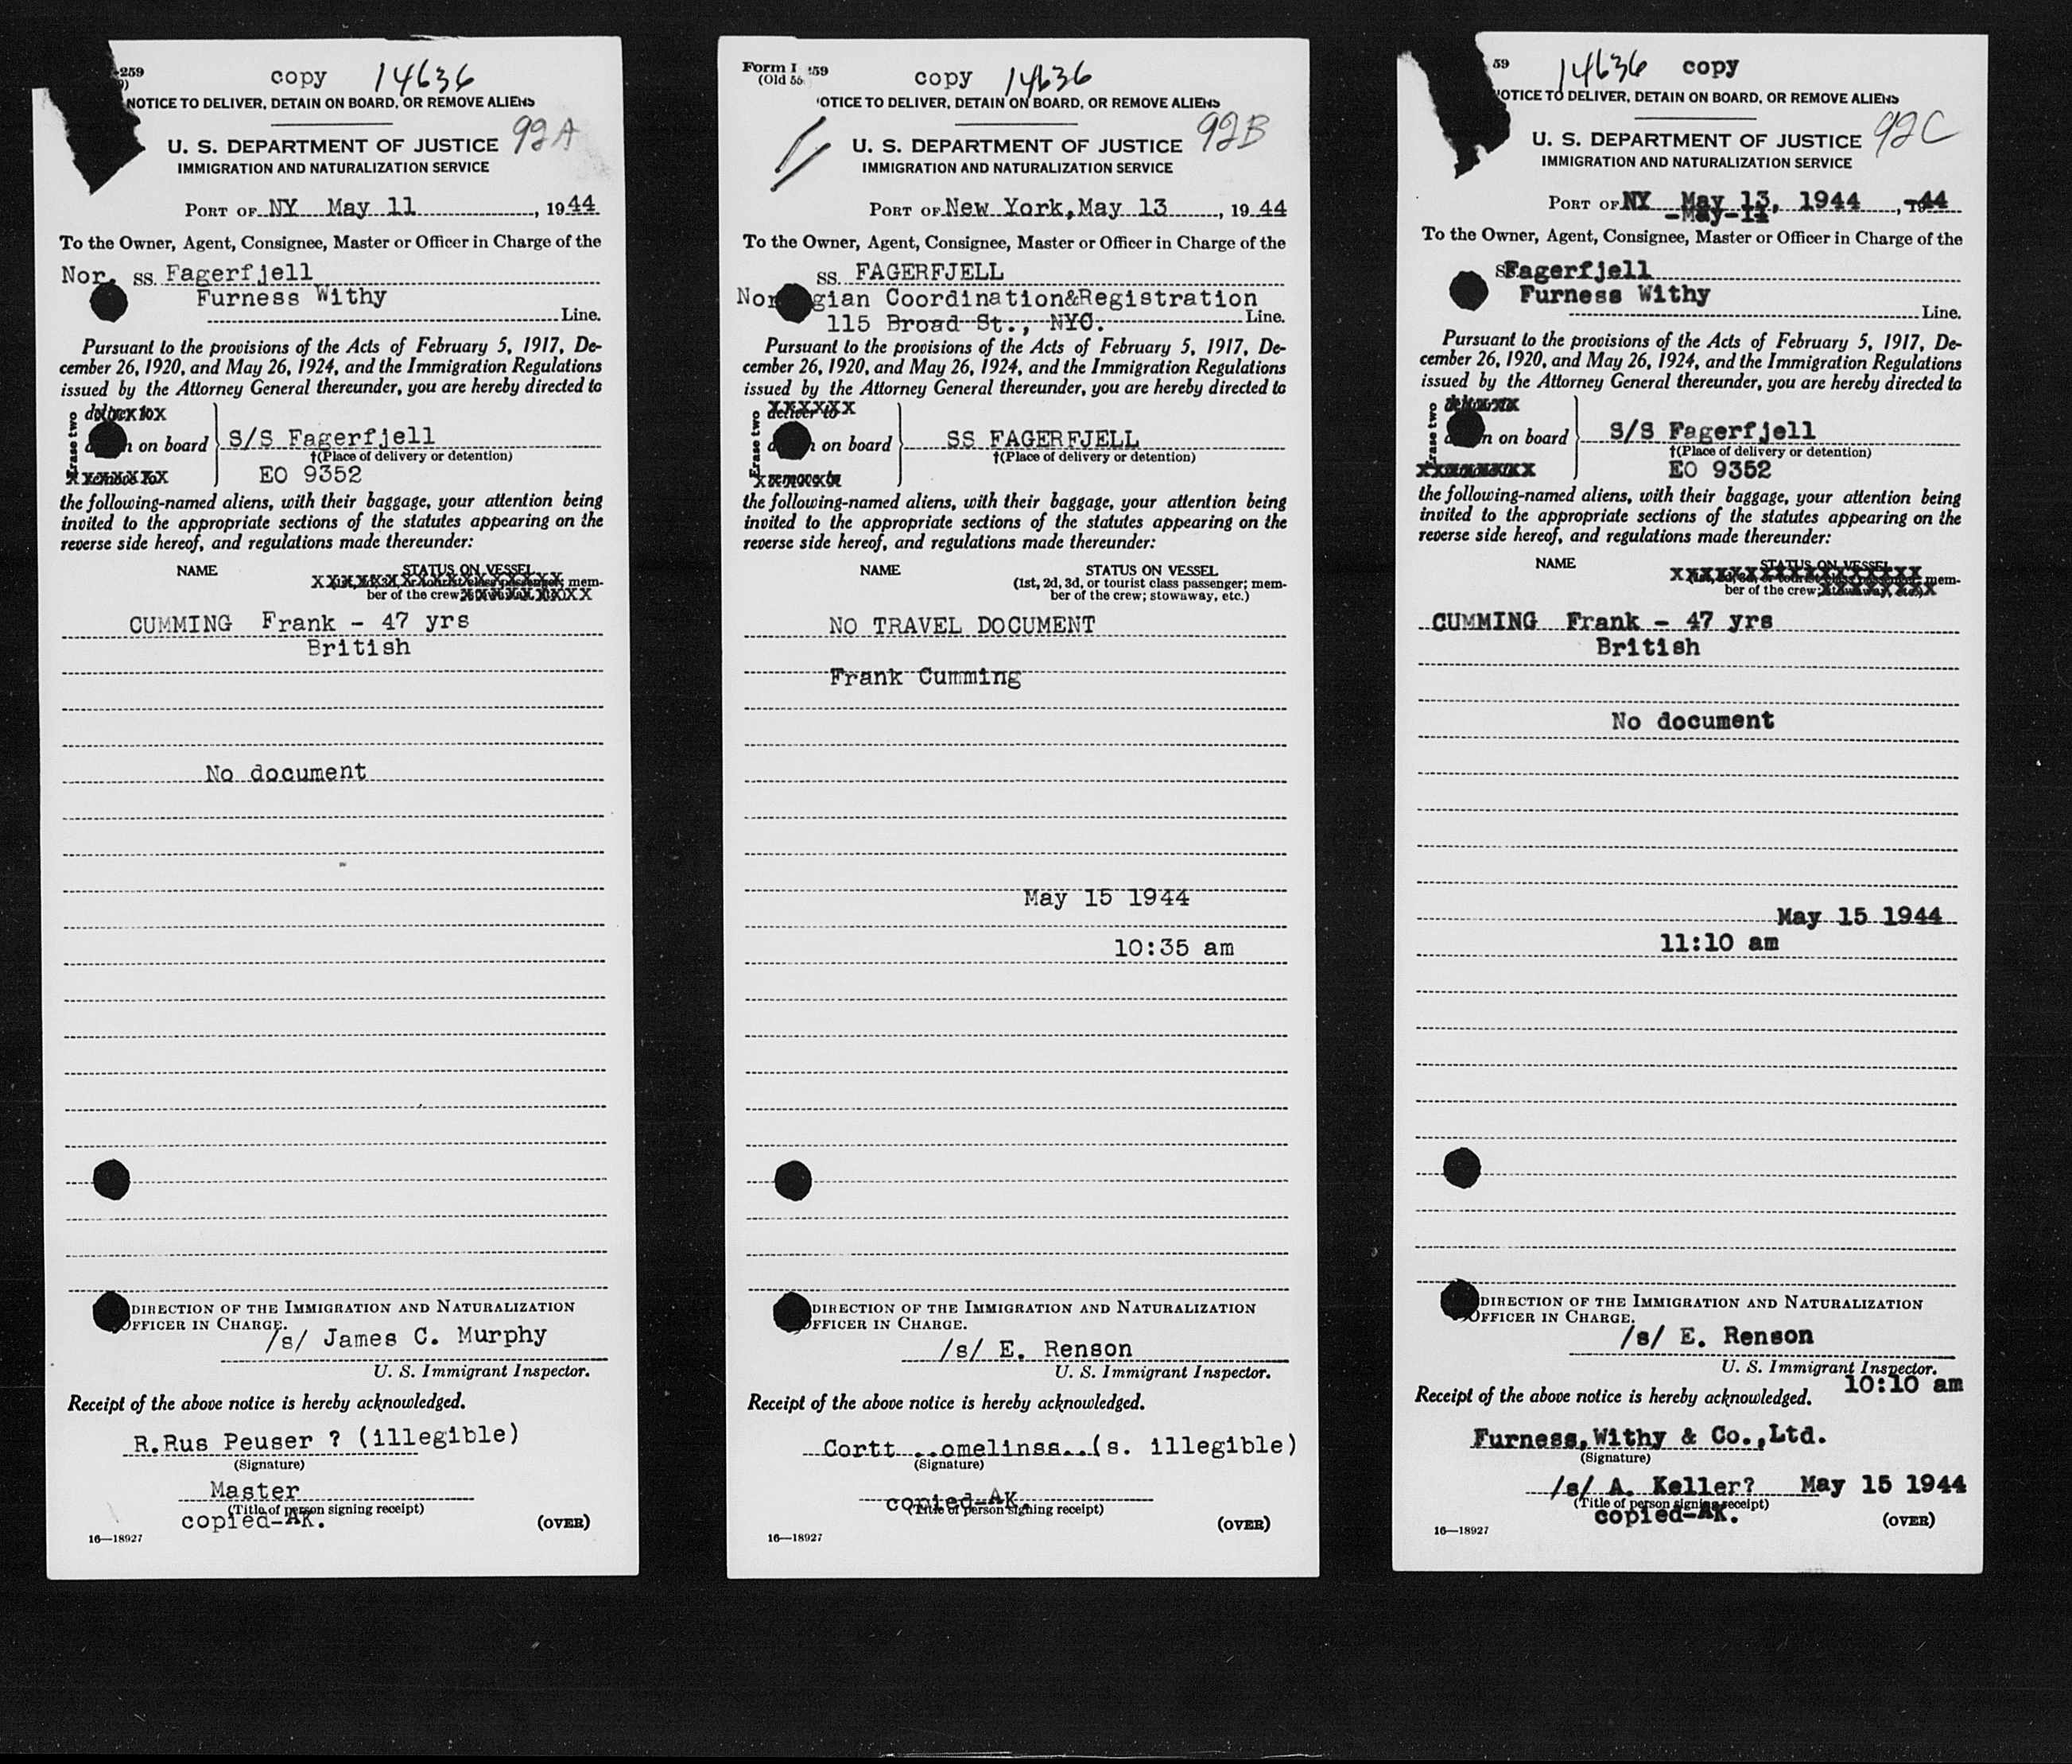 -259
copy 14636
NOTICE TO DELIVER, DETAIN ON BOARD, OR REMOVE ALIENS
U. S. DEPARTMENT OF JUSTICE 92A
IMMIGRATION AND NATURALIZATION SERVICE
PORT OF NY May 11, 1944
To the Owner, Agent, Consignee, Master or Officer in Charge of the
Nor. SS. Fagerfjell
Furness Withy
Line.
Pursuant to the provisions of the Acts of February 5, 1917, De-
cember 26, 1920, and May 26, 1924, and the Immigration Regulations
issued by the Attorney General thereunder, you are hereby directed to
Erase two
on board S/S Fagerfjell
†(Place of delivery or detention)
EO 9352
the following-named aliens, with their baggage, your attention being
invited to the appropriate sections of the statutes appearing on the
reverse side hereof, and regulations made thereunder:
NAME STATUS ON VESSEL
mem-
ber of the crew
CUMMING Frank - 47 yrs
British
No document
DIRECTION OF THE IMMIGRATION AND NATURALIZATION
OFFICER IN CHARGE.
/s/ James C. Murphy
U. S. Immigrant Inspector.
Receipt of the above notice is hereby acknowledged.
R.Rus Peuser ? (illegible)
(Signature)
Master
(Title of person signing receipt)
copied-AK.
(OVER)
16—18927
Form I 259
(Old 56
copy 14636
OTICE TO DELIVER, DETAIN ON BOARD, OR REMOVE ALIENS
U. S. DEPARTMENT OF JUSTICE 92B
IMMIGRATION AND NATURALIZATION SERVICE
PORT OF New York, May 13, 1944
To the Owner, Agent, Consignee, Master or Officer in Charge of the
SS. FAGERFJELL
Nor gian Coordination&Registration
115 Broad St., NYC. Line.
Pursuant to the provisions of the Acts of February 5, 1917, De-
cember 26, 1920, and May 26, 1924, and the Immigration Regulations
issued by the Attorney General thereunder, you are hereby directed to
Erase two
deliver to
on board SS FAGERFJELL
†(Place of delivery or detention)
the following-named aliens, with their baggage, your attention being
invited to the appropriate sections of the statutes appearing on the
reverse side hereof, and regulations made thereunder:
NAME STATUS ON VESSEL
(1st, 2d, 3d, or tourist class passenger; mem-
ber of the crew; stowaway, etc.)
NO TRAVEL DOCUMENT
Frank Cumming
May 15 1944
10:35 am
DIRECTION OF THE IMMIGRATION AND NATURALIZATION
OFFICER IN CHARGE.
/s/ E. Renson
U. S. Immigrant Inspector.
Receipt of the above notice is hereby acknowledged.
Cortt ..omelinss..(s. illegible)
(Signature)
copied-AK.
(Title of person signing receipt)
(OVER)
16—18927
59
14636 copy
OTICE TO DELIVER, DETAIN ON BOARD, OR REMOVE ALIENS
U. S. DEPARTMENT OF JUSTICE 92C
IMMIGRATION AND NATURALIZATION SERVICE
PORT OF NY May 13, 1944, 1944
-May-11
To the Owner, Agent, Consignee, Master or Officer in Charge of the
SS Fagerfjell
Furness Withy
Line.
Pursuant to the provisions of the Acts of February 5, 1917, De-
cember 26, 1920, and May 26, 1924, and the Immigration Regulations
issued by the Attorney General thereunder, you are hereby directed to
Erase two
on board S/S Fagerfjell
†(Place of delivery or detention)
EO 9352
the following-named aliens, with their baggage, your attention being
invited to the appropriate sections of the statutes appearing on the
reverse side hereof, and regulations made thereunder:
NAME STATUS ON VESSEL
mem-
ber of the crew
CUMMING Frank - 47 yrs
British
No document
May 15 1944
11:10 am
DIRECTION OF THE IMMIGRATION AND NATURALIZATION
OFFICER IN CHARGE.
/s/ E. Renson
U. S. Immigrant Inspector.
10:10 am
Receipt of the above notice is hereby acknowledged.
Furness, Withy & Co., Ltd.
(Signature)
/s/ A. Keller? May 15 1944
(Title of person signing receipt)
copied-AK.
(OVER)
16—18927